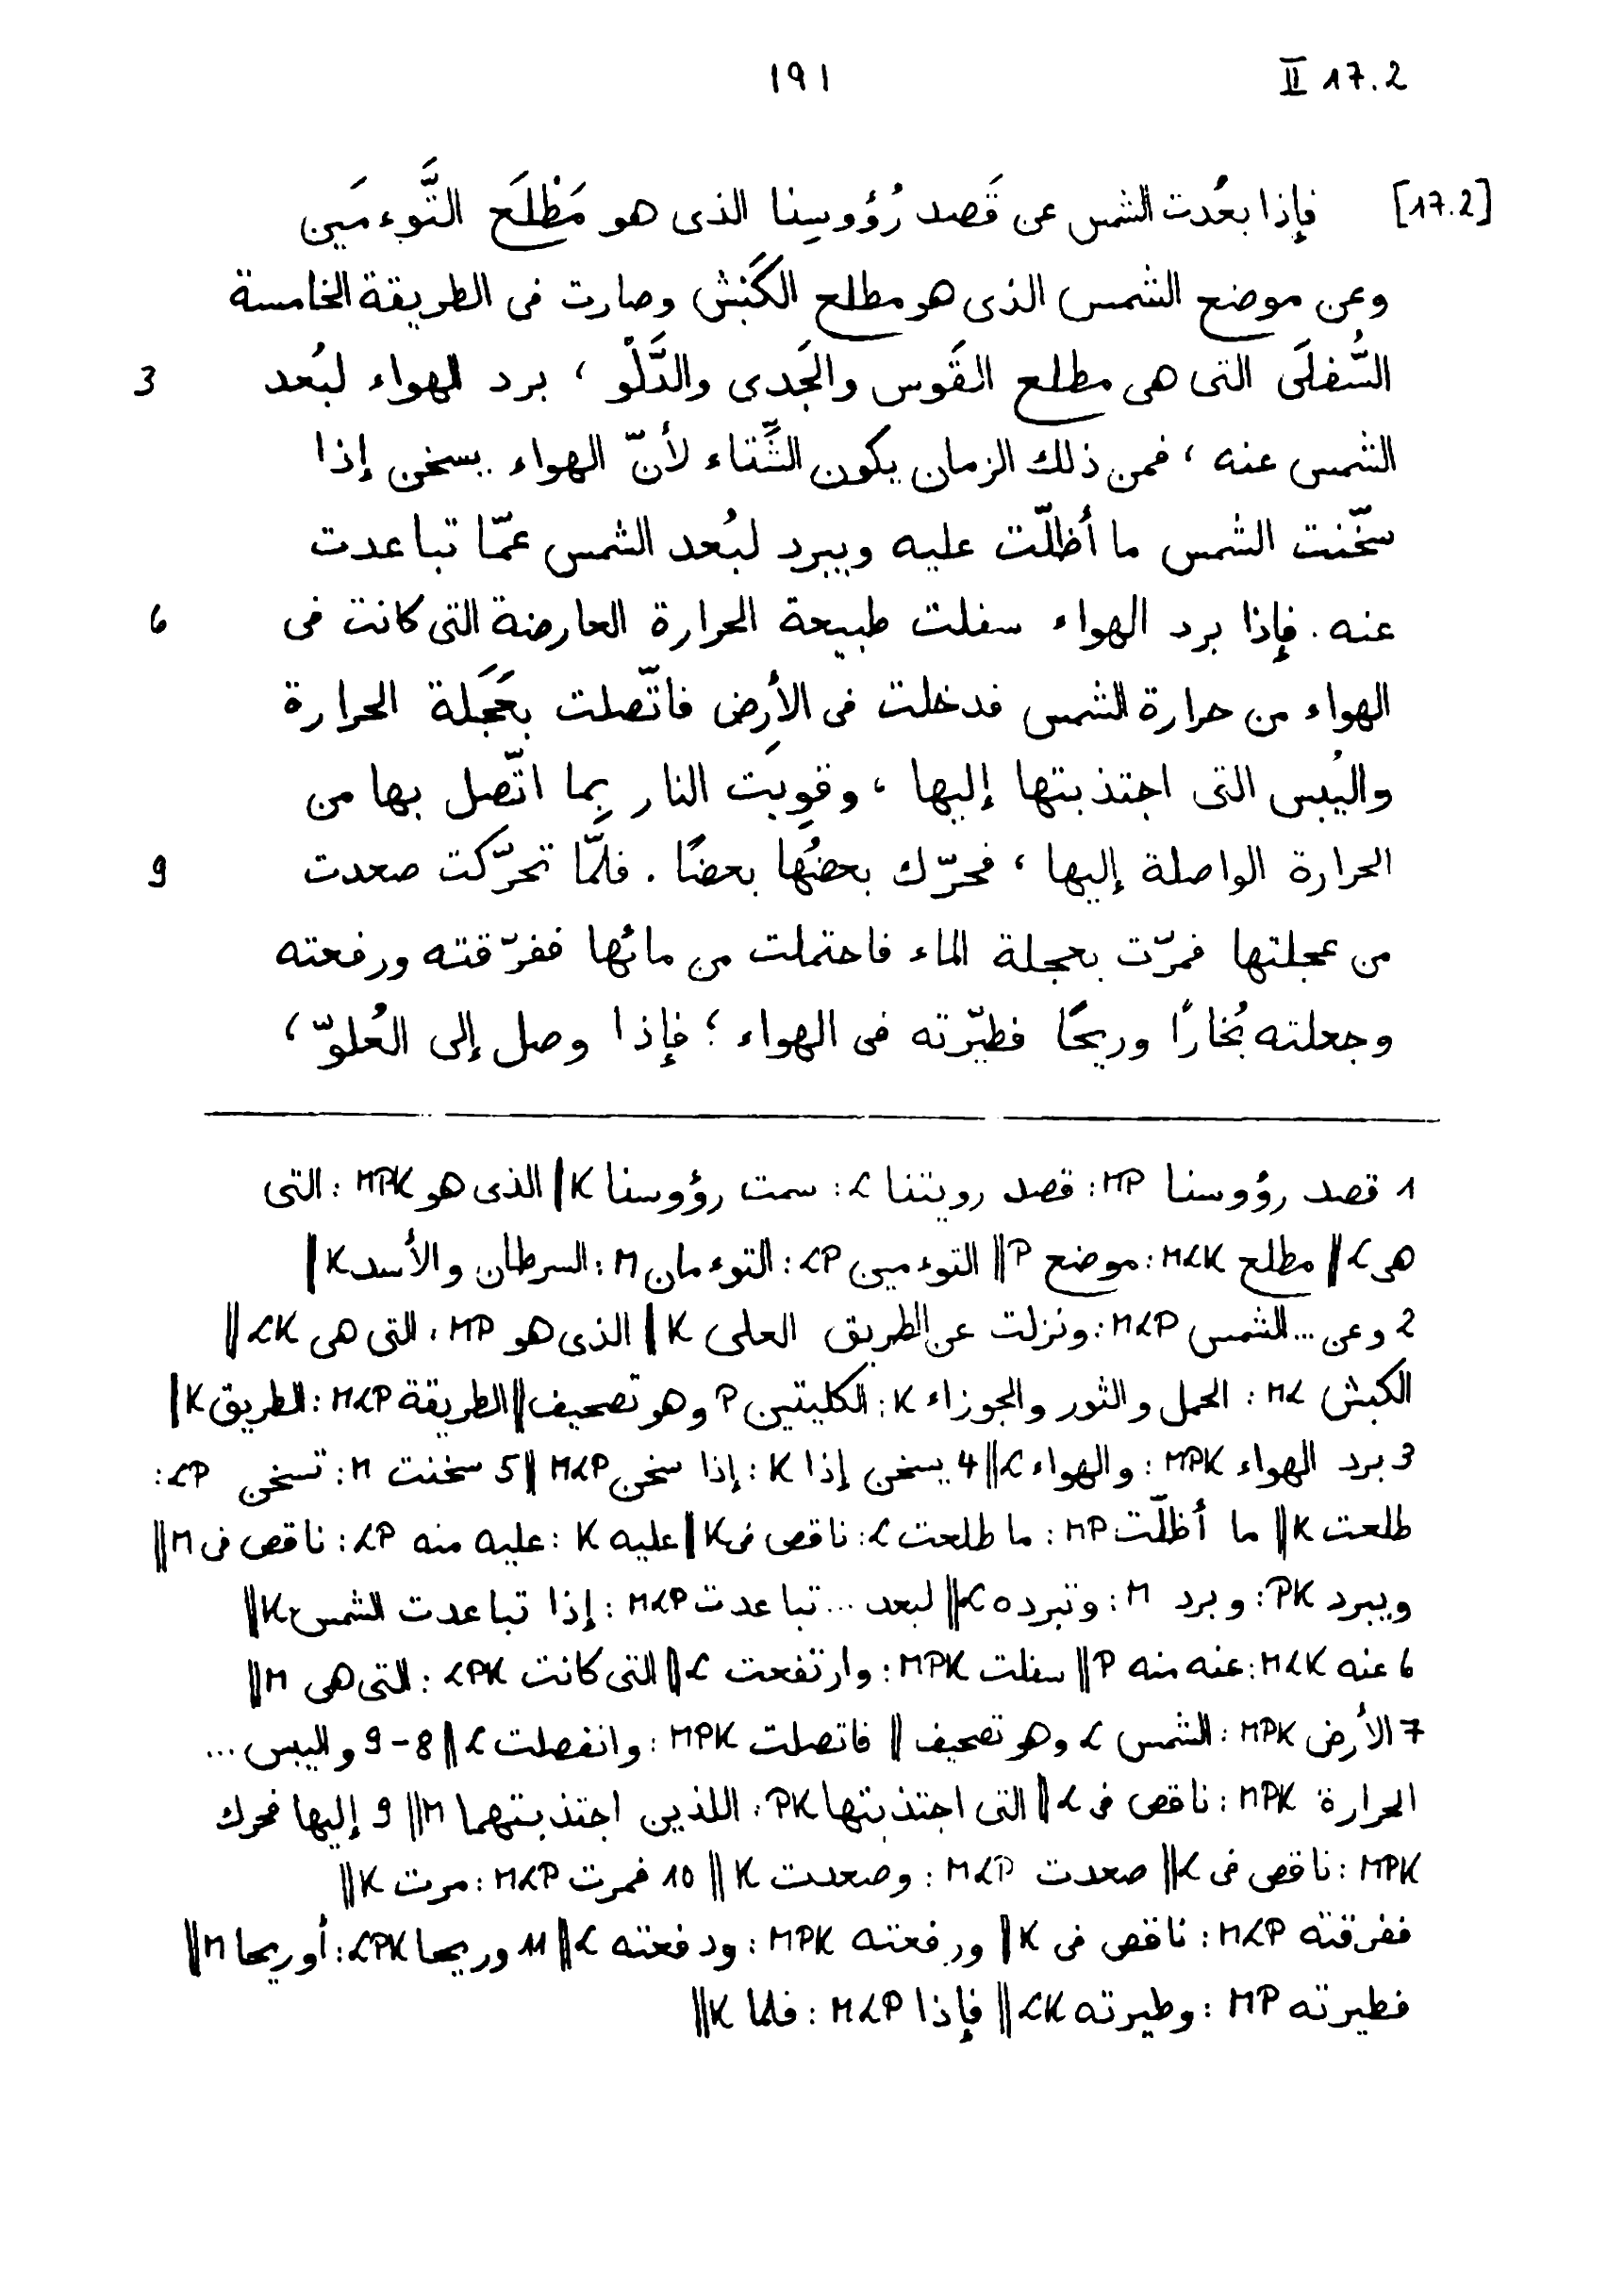 ١٩١ II 17.2
[17.2] فإذا بعُدت الشمس عن قَصد رُؤوسِنا الذى هو مَطْلَع التَّوءمَين
وعن موضع الشمس الذى هو مطلع الكَبْش وصارت فى الطريقة الخامسة
3 السُّفلَى التى هى مطلع القَوس والجَدى والدَّلْو ، برد الهواء لبُعد
الشمس عنه ، فمن ذلك الزمان يكون الشِّتاء لأنّ الهواء يسخن إذا
سخّنت الشمس ما أظلّت عليه ويبرد لبُعد الشمس عمّا تباعدت
6 عنه . فإذا برد الهواء سفلت طبيعة الحرارة العارضة التى كانت فى
الهواء من حرارة الشمس فدخلت فى الأرض فاتّصلت بعَجَلة الحرارة
واليُبس التى اجتذبتها إليها ، وقوِيَت النار بِما اتّصل بها من
9 الحرارة الواصلة إليها ، فحرّك بعضُها بعضًا . فلمّا تحرّكت صعدت
من عجلتها فمرّت بعجلة الماء فاحتملت من مائها ففرّقته ورفعته
وجعلته بُخارًا وريحًا فطيّرته فى الهواء ؛ فإذا وصل إلى العُلوّ ،
1 قصد رؤوسنا MP : قصد رويتنا L : سمت رؤوسنا K || الذى هو MPK : التى
هى L || مطلع MLK : موضع P || التوءمين LP : التوءمان M : السرطان والأسد K ||
2 وعن ... الشمس MLP : ونزلت عن الطريق العلى K || الذى هو MP : التى هى LK ||
الكبش ML : الحمل والثور والجوزاء K : الكليتين P وهو تصحيف || الطريقة MLP : الطريق K ||
3 برد الهواء MPK : والهواء L || 4 يسخن إذا K : إذا سخن MLP || 5 سخنت M : تسخن LP :
طلعت K || ما أظلّت MP : ما طلعت L : ناقص فى K || عليه K : عليه منه LP : ناقص فى M ||
ويبرد PK : وبرد M : وتبرده L || لبعد ... تباعدت MLP : إذا تباعدت الشمس K ||
6 عنه MLK : عنه منه P || سفلت MPK : وارتفعت L || التى كانت LPK : التى هى M ||
7 الأرض MPK : الشمس L وهو تصحيف || فاتصلت MPK : وانفصلت L || 8-9 واليبس ...
الحرارة MPK : ناقص فى L || التى اجتذبتها PK : اللذين اجتذبتهما M || 9 إليها فحرك
MPK : ناقص فى L || صعدت MLP : وصعدت K || 10 فمرت MLP : مرت K ||
ففرقته MLP : ناقص فى K || ورفعته MPK : ودفعته L || 11 وريحا LPK : أوريحا M ||
فطيرته MP : وطيرته LK || فإذا MLP : فلما K ||